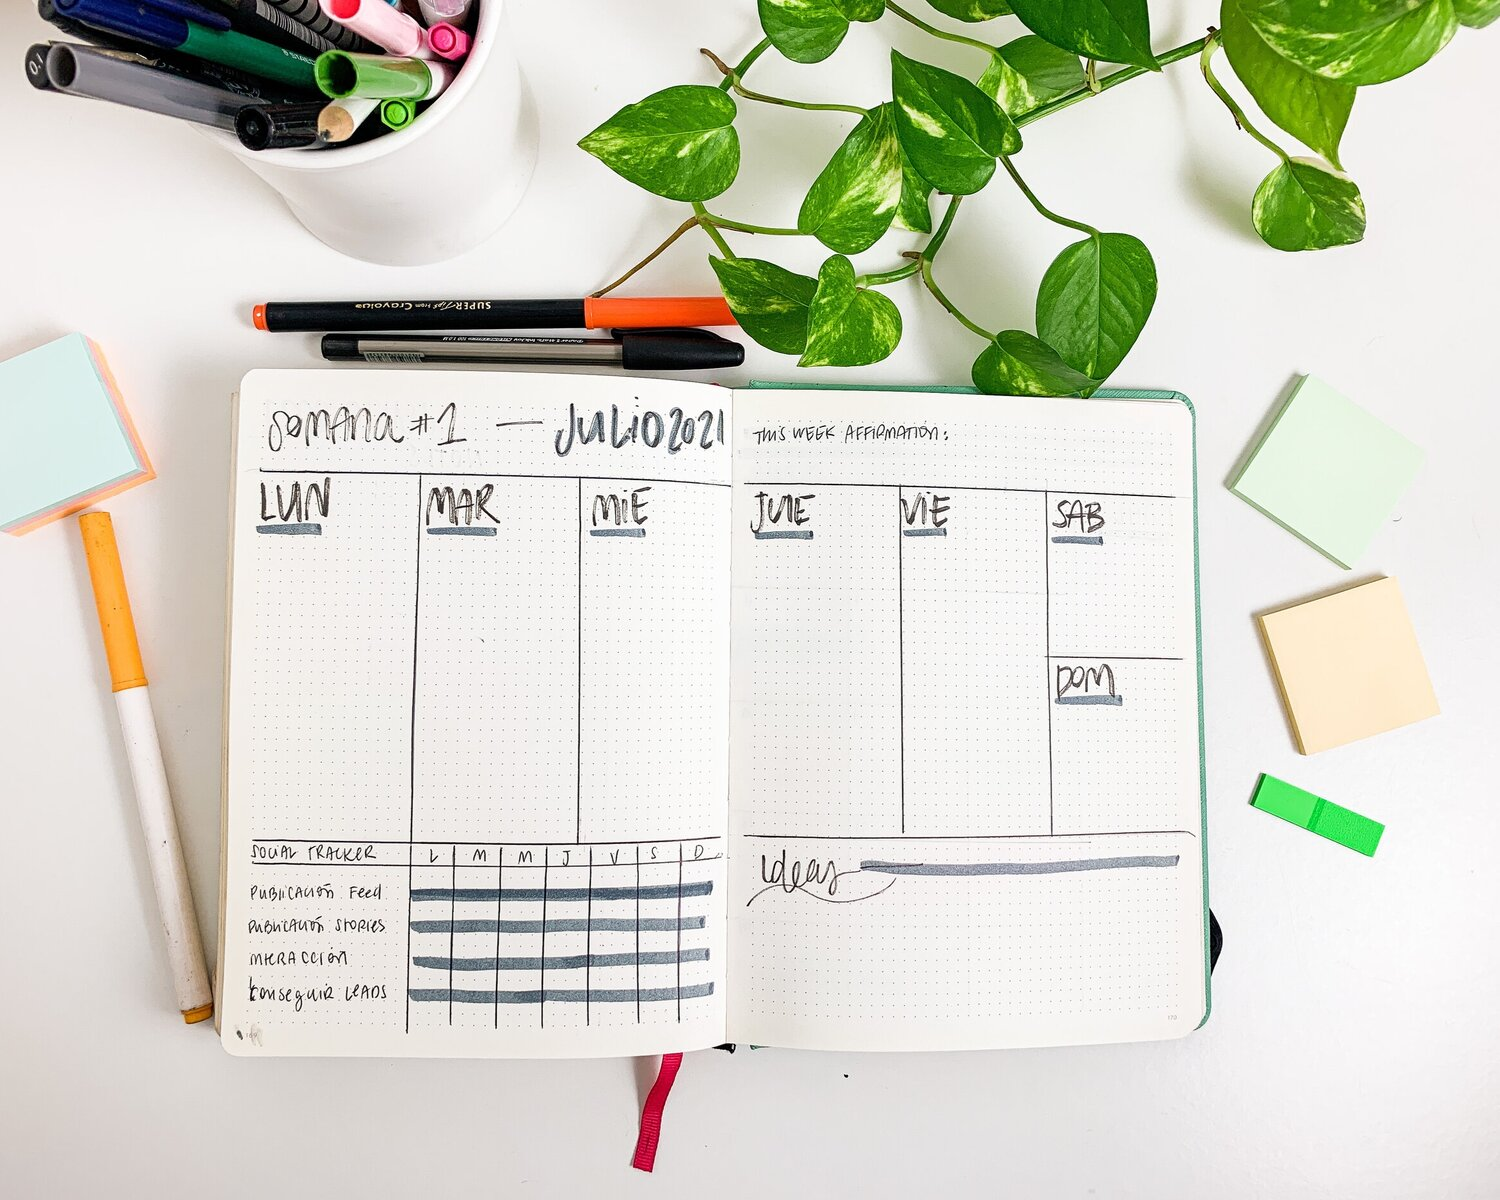 0.1
SUPERTips from Crayola
SEMANA #1 — JULIO 2021
LUN
MAR
MIE
SOCIAL TRACKER L M M J V S D
PUBLICACIÓN FEED
PUBLICACIÓN STORIES
INTERACCIÓN
CONSEGUIR LEADS
THIS WEEK AFFIRMATION:
JUE
VIE
SAB
DOM
Ideas
170